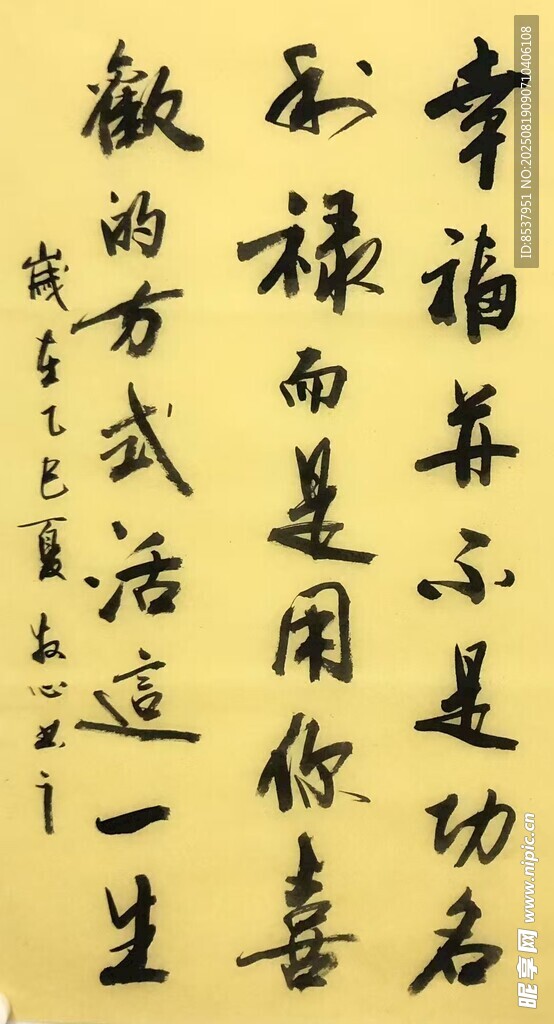 幸福並不是功名
利禄而是用你喜
歡的方式活這一生
歲在乙巳夏牧心书
ID:8537951 NO:20250819090710406108
昵享网 www.nipic.cn